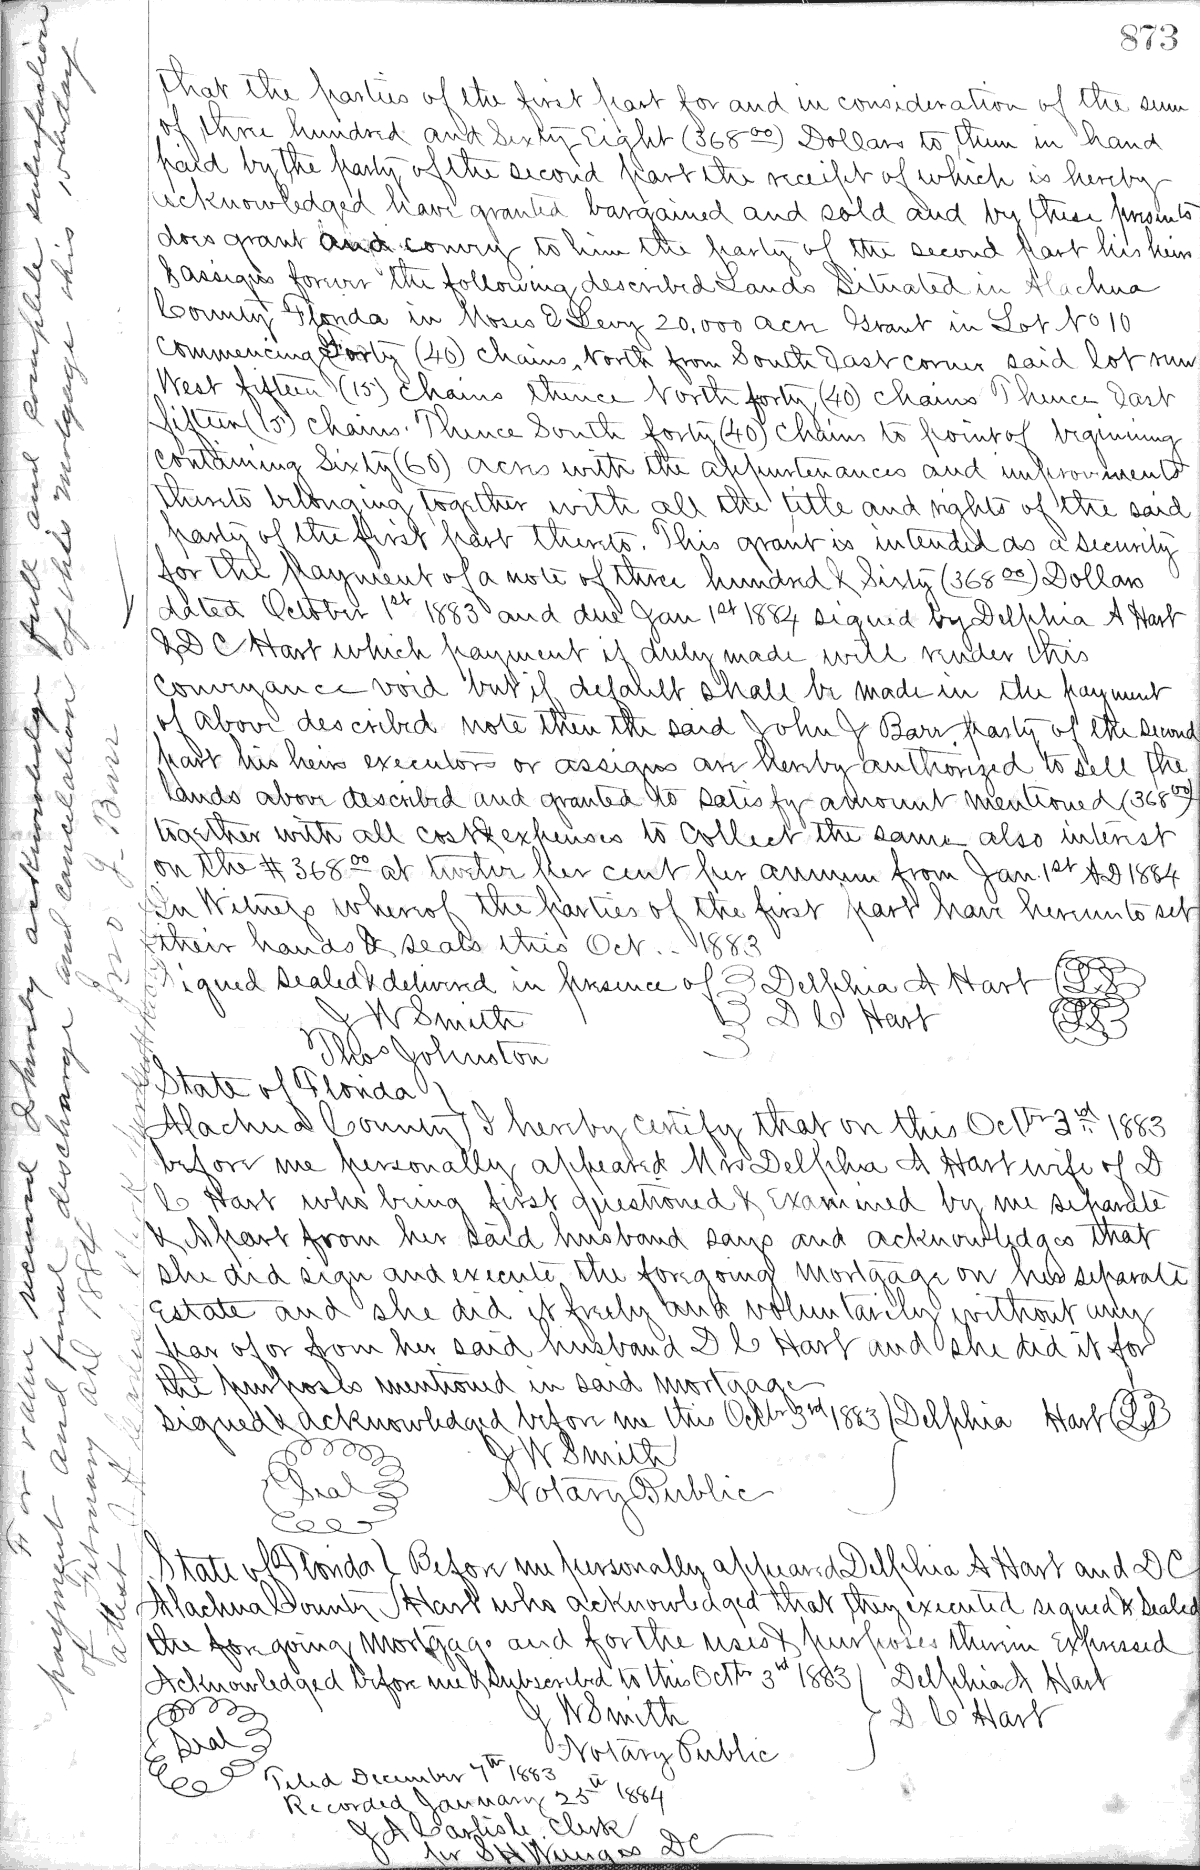 873
that the parties of the first part for and in consideration of the sum
of three hundred and Sixty Eight (368 00) Dollars to them in hand
paid by the party of the second part the receipt of which is hereby
acknowledged have granted bargained and sold and by these presents
does grant and convey to him the party of the second part his heirs
& assigns forever the following described Lands Situated in Alachua
County Florida in Moses E Levy 20,000 acre Grant in Lot No 10
Commencing Forty (40) chains North from South East corner said lot run
West fifteen (15) chains thence North forty (40) chains Thence East
fifteen (15) chains. Thence South forty (40) chains to point of beginning
containing Sixty (60) acres with the appurtenances and improvements
thereto belonging together with all the title and rights of the said
party of the first part thereto. This grant is intended as a security
for the payment of a note of three hundred & Sixty (368 00) Dollars
dated October 1st 1883 and due Jan 1st 1884 signed by Delphia A Hart
& D C Hart which payment if duly made will render this
Conveyance void but if default shall be made in the payment
of above described note then the said John J Barr party of the second
part his heirs executors or assigns are hereby authorized to sell the
lands above described and granted to satisfy amount mentioned (368 00)
together with all cost & expenses to Collect the same also interest
on the # 368 00 at twelve per cent per annum from Jan. 1st AD 1884
In Witness whereof the parties of the first part have hereunto set
their hands & seals this Oct .. 1883
Signed sealed & delivered in presence of Delphia A Hart (LS)
J W Smith D C Hart (LS)
Thos Johnston
State of Florida
Alachua County } I hereby certify that on this Octbr 3rd 1883
before me personally appeared Mrs Delphia A Hart wife of D
C Hart who being first questioned & Examined by me separate
& Apart from her said husband says and acknowledges that
she did sign and execute the foregoing Mortgage on her separate
Estate and she did it freely and voluntarily without any
fear of or from her said husband D C Hart and she did it for
the purposes mentioned in said Mortgage
signed & acknowledged before me this Octbr 3rd 1883 } Delphia Hart (LS)
J W Smith
Seal Notary Public
State of Florida } Before me personally appeared Delphia A Hart and D C
Alachua County } Hart who acknowledged that they executed signed & sealed
the foregoing Mortgage and for the uses & purposes therein Expressed
Acknowledged before me & Subscribed to this Octbr 3rd 1883 } Delphia A Hart
J W Smith D C Hart
Seal Notary Public
Filed December 7th 1883
Recorded January 25th 1884
J A Carlisle Clerk
per DC
For value received I hereby acknowledge full and complete satisfaction
payment and final discharge and cancelation of this Mortgage this day
of February AD 1884 Jno J Barr
attest J A Carlisle Clerk